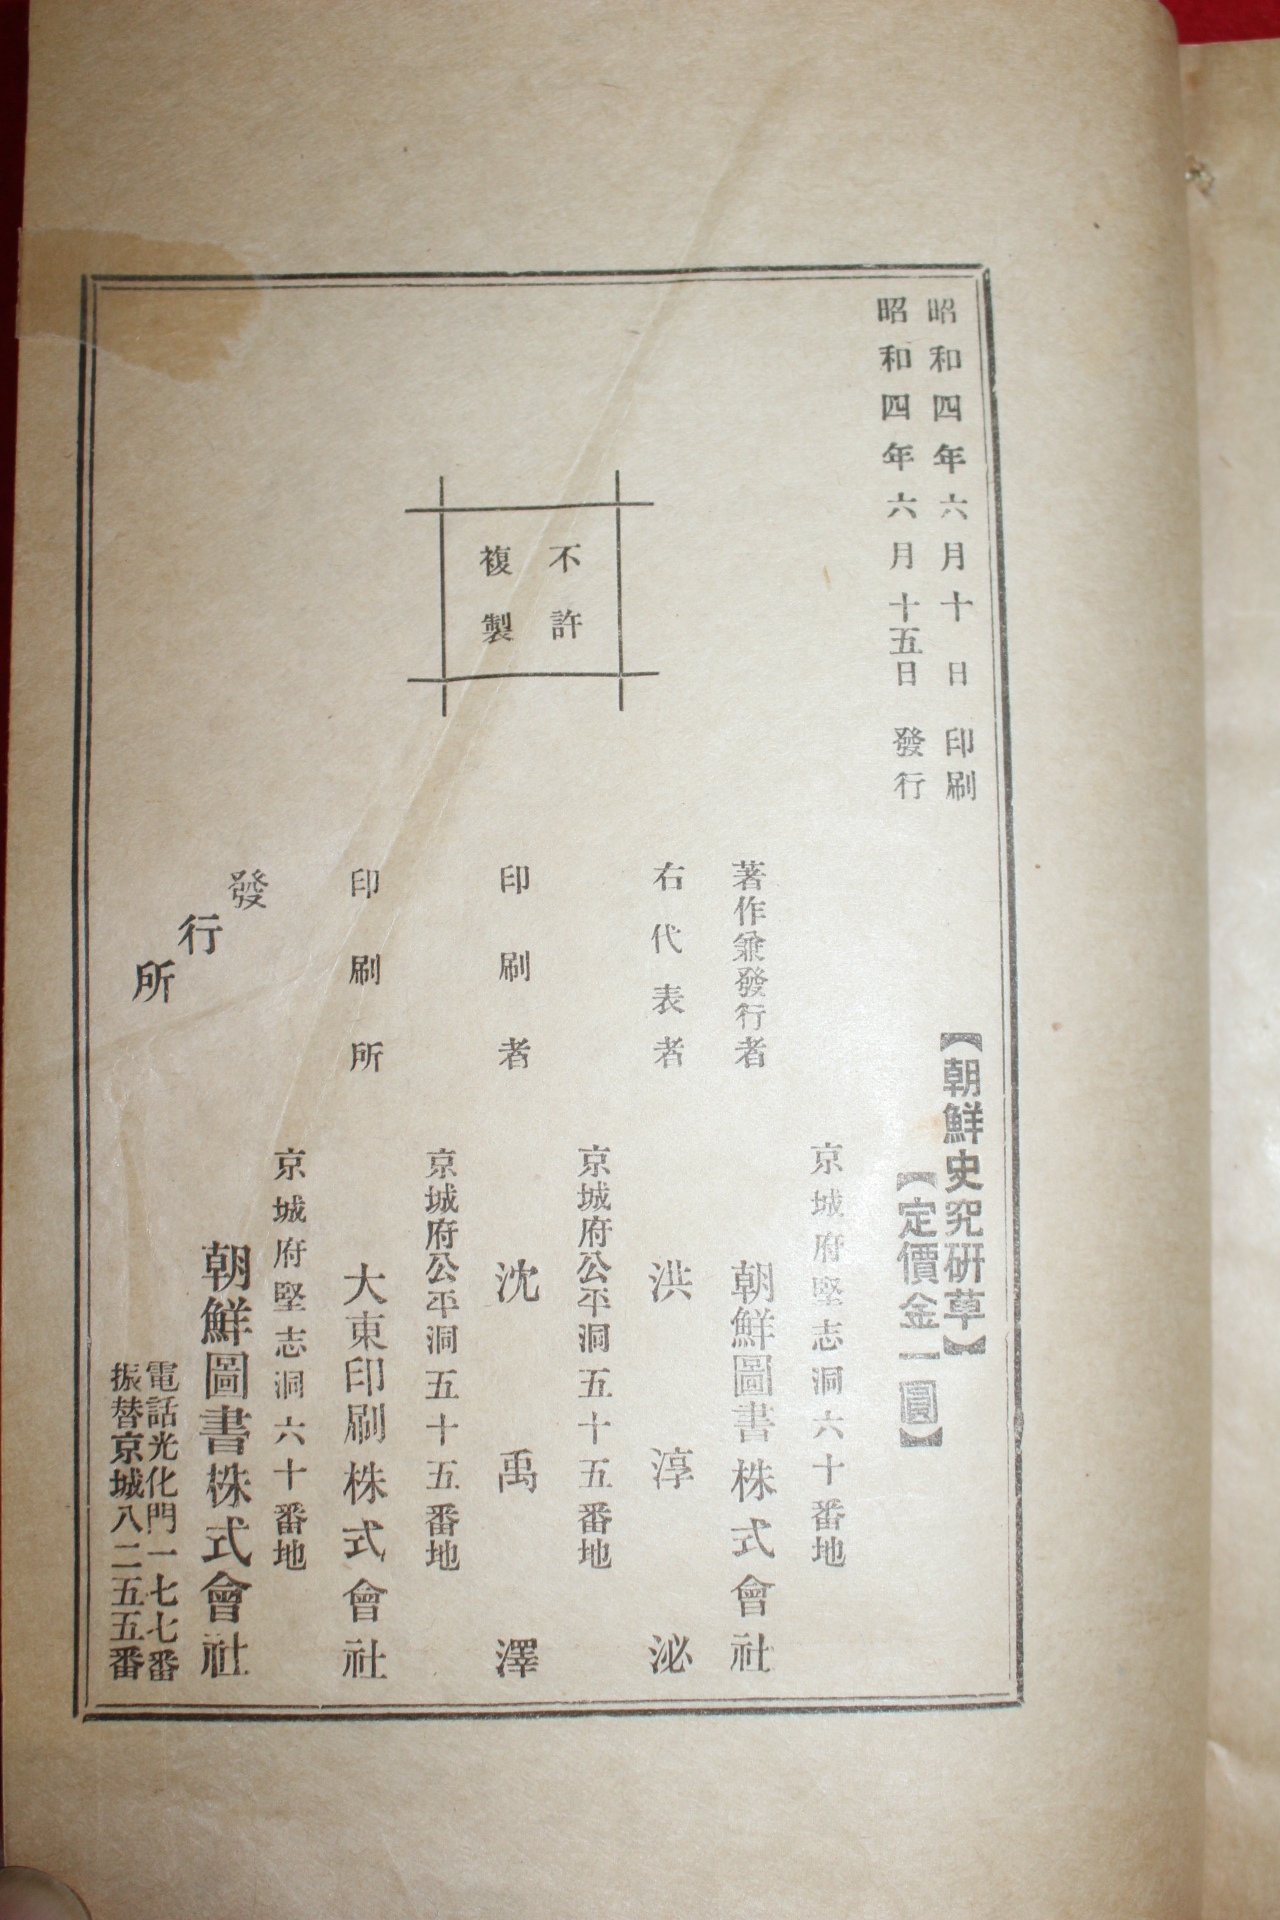 昭和四年六月十日印刷
昭和四年六月十五日發行
【朝鮮史究研草】
【定價金一圓】
不許
複製
京城府堅志洞六十番地
著作兼發行者 朝鮮圖書株式會社
右代表者 洪淳泌
京城府公平洞五十五番地
印刷者 沈禹澤
京城府公平洞五十五番地
印刷所 大東印刷株式會社
京城府堅志洞六十番地
發行所 朝鮮圖書株式會社
電話光化門一七七番
振替京城八二五五番